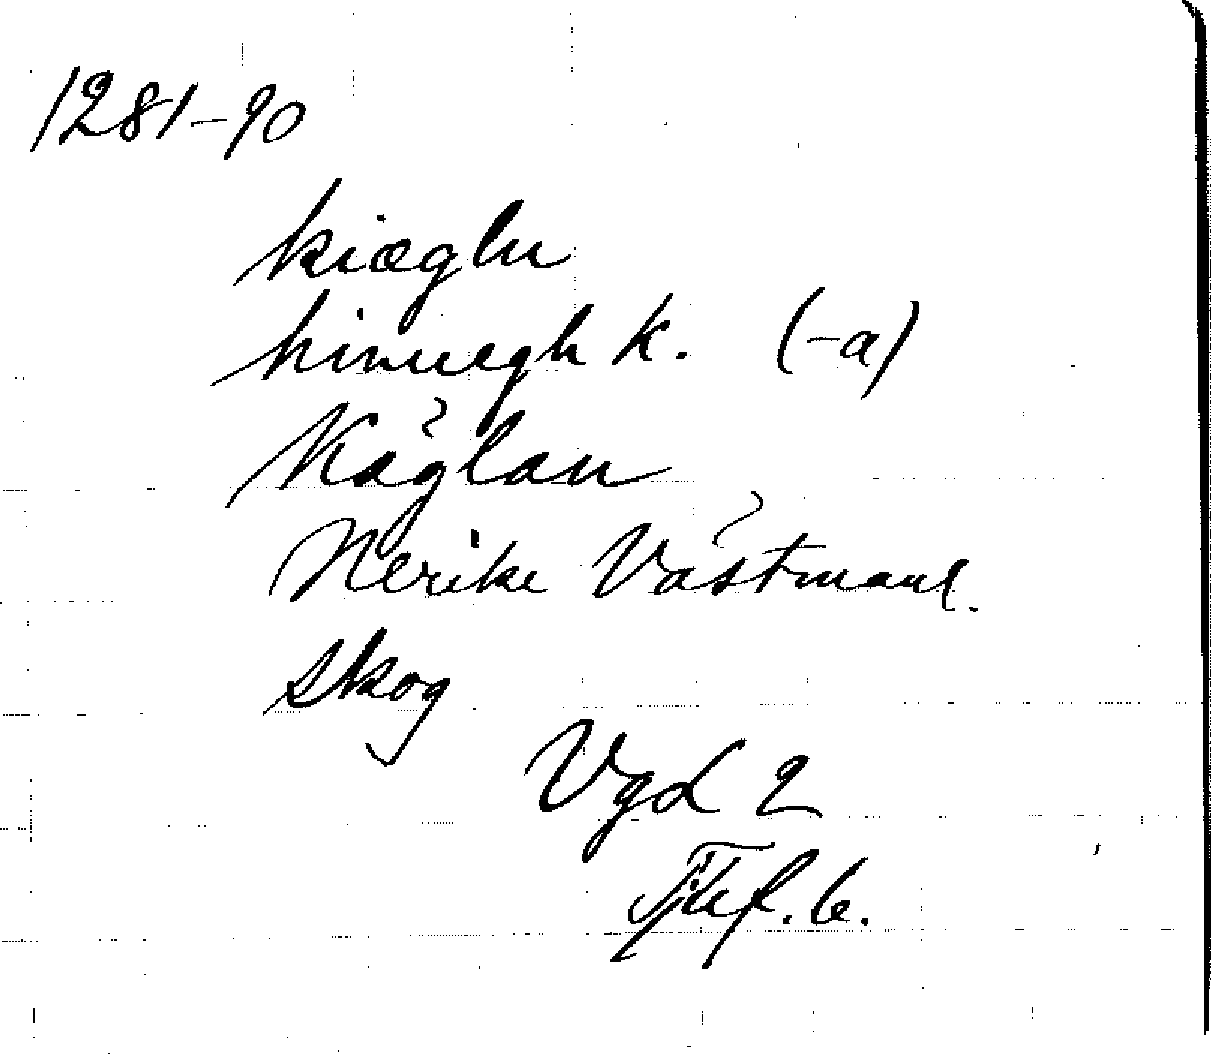 1281-90
kiæglu
hinuegh k. (-a)
Käglan
Nerike Västmanl.
skog
Vgd 2
Tjuf. 6.